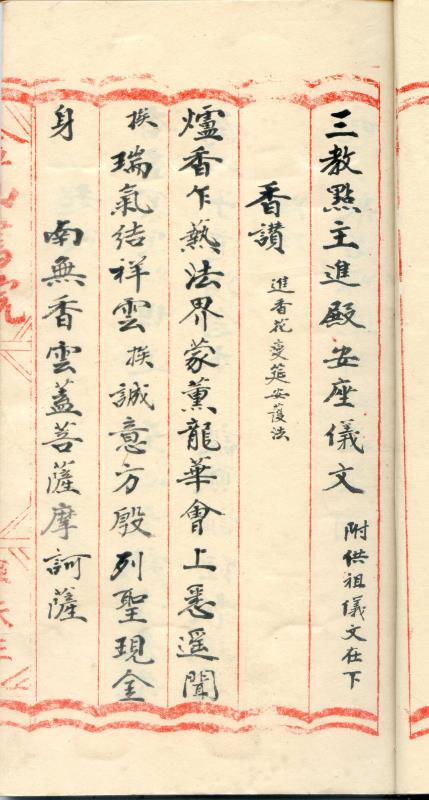 三教點主進殿安座儀文 附供祖儀文在下
香讚 進香花變筵安護法
爐香乍爇法界蒙薰龍華會上悉遥聞
挨 瑞氣結祥雲 挨 誠意方殷列聖現金
身 南無香雲蓋菩薩摩訶薩